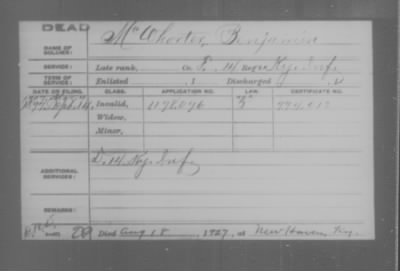 DEAD
NAME OF SOLDIER: McWhorter, Benjamin
SERVICE: Late rank, Co. F, 14 Reg't Ky. Inf.
TERM OF SERVICE: Enlisted , 1 Discharged , 1
DATE OF FILING. CLASS. APPLICATION NO. LAW. CERTIFICATE NO.
Sept. 14 Invalid, 1178,096
Widow,
Minor,
ADDITIONAL SERVICES: D. 14 Ky. Inf.
REMARKS:
Died Aug 18, 1927, at New Haven, Ky.